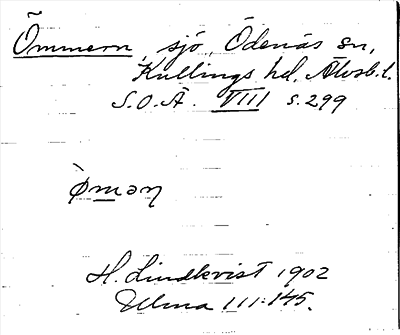 Ömmern, sjö, Ödenäs sn,
Kullings hd, Älvsb. l.
S.O.Ä. VIII s. 299
ø̀mən
H. Lindkvist 1902
Ulma 111:145.